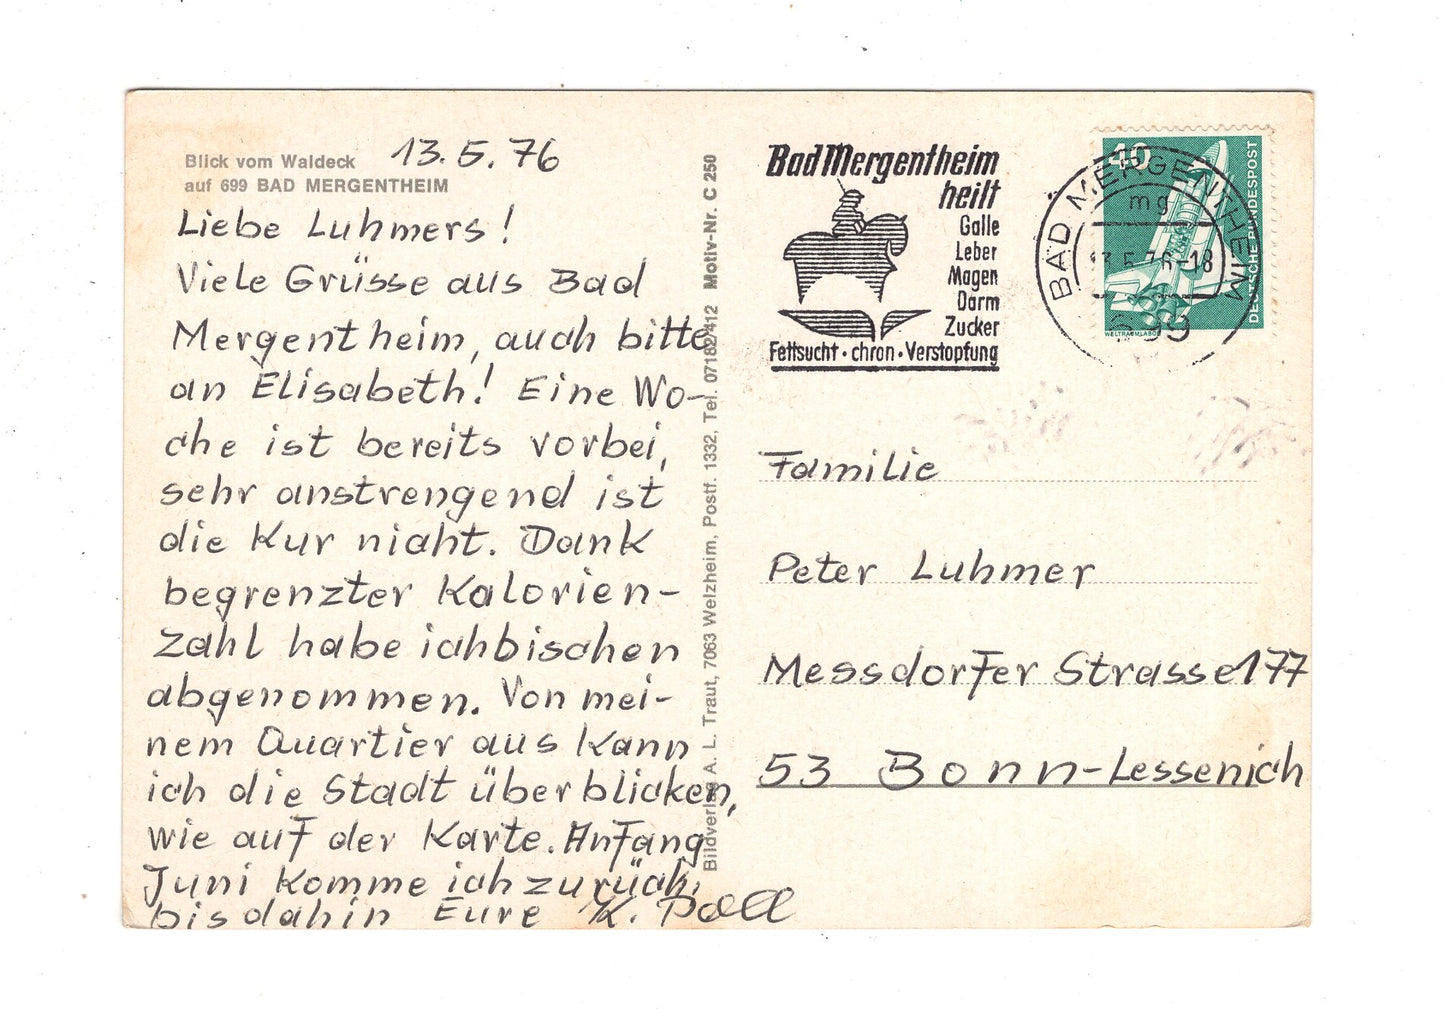 Blick vom Waldeck
auf 699 BAD MERGENTHEIM
13.5.76
Liebe Luhmers!
Viele Grüsse aus Bad
Mergentheim, auch bitte
an Elisabeth! Eine Wo-
che ist bereits vorbei,
sehr anstrengend ist
die Kur nicht. Dank
begrenzter Kalorien-
zahl habe ich bischen
abgenommen. Von mei-
nem Quartier aus kann
ich die Stadt überblicken,
wie auf der Karte. Anfang
Juni komme ich zurück,
bis dahin Eure K. Doll
Bildverlag A. L. Traut, 7063 Welzheim, Postf. 1332, Tel. 07182/412 Motiv-Nr. C 250
Bad Mergentheim
heilt
Galle
Leber
Magen
Darm
Zucker
Fettsucht · chron · Verstopfung
BAD MERGENTHEIM
mg
13.5.76-18
699
40
DEUTSCHE BUNDESPOST
WELTRAUMLABOR
Familie
Peter Luhmer
Messdorfer Strasse 177
53 Bonn-Lessenich